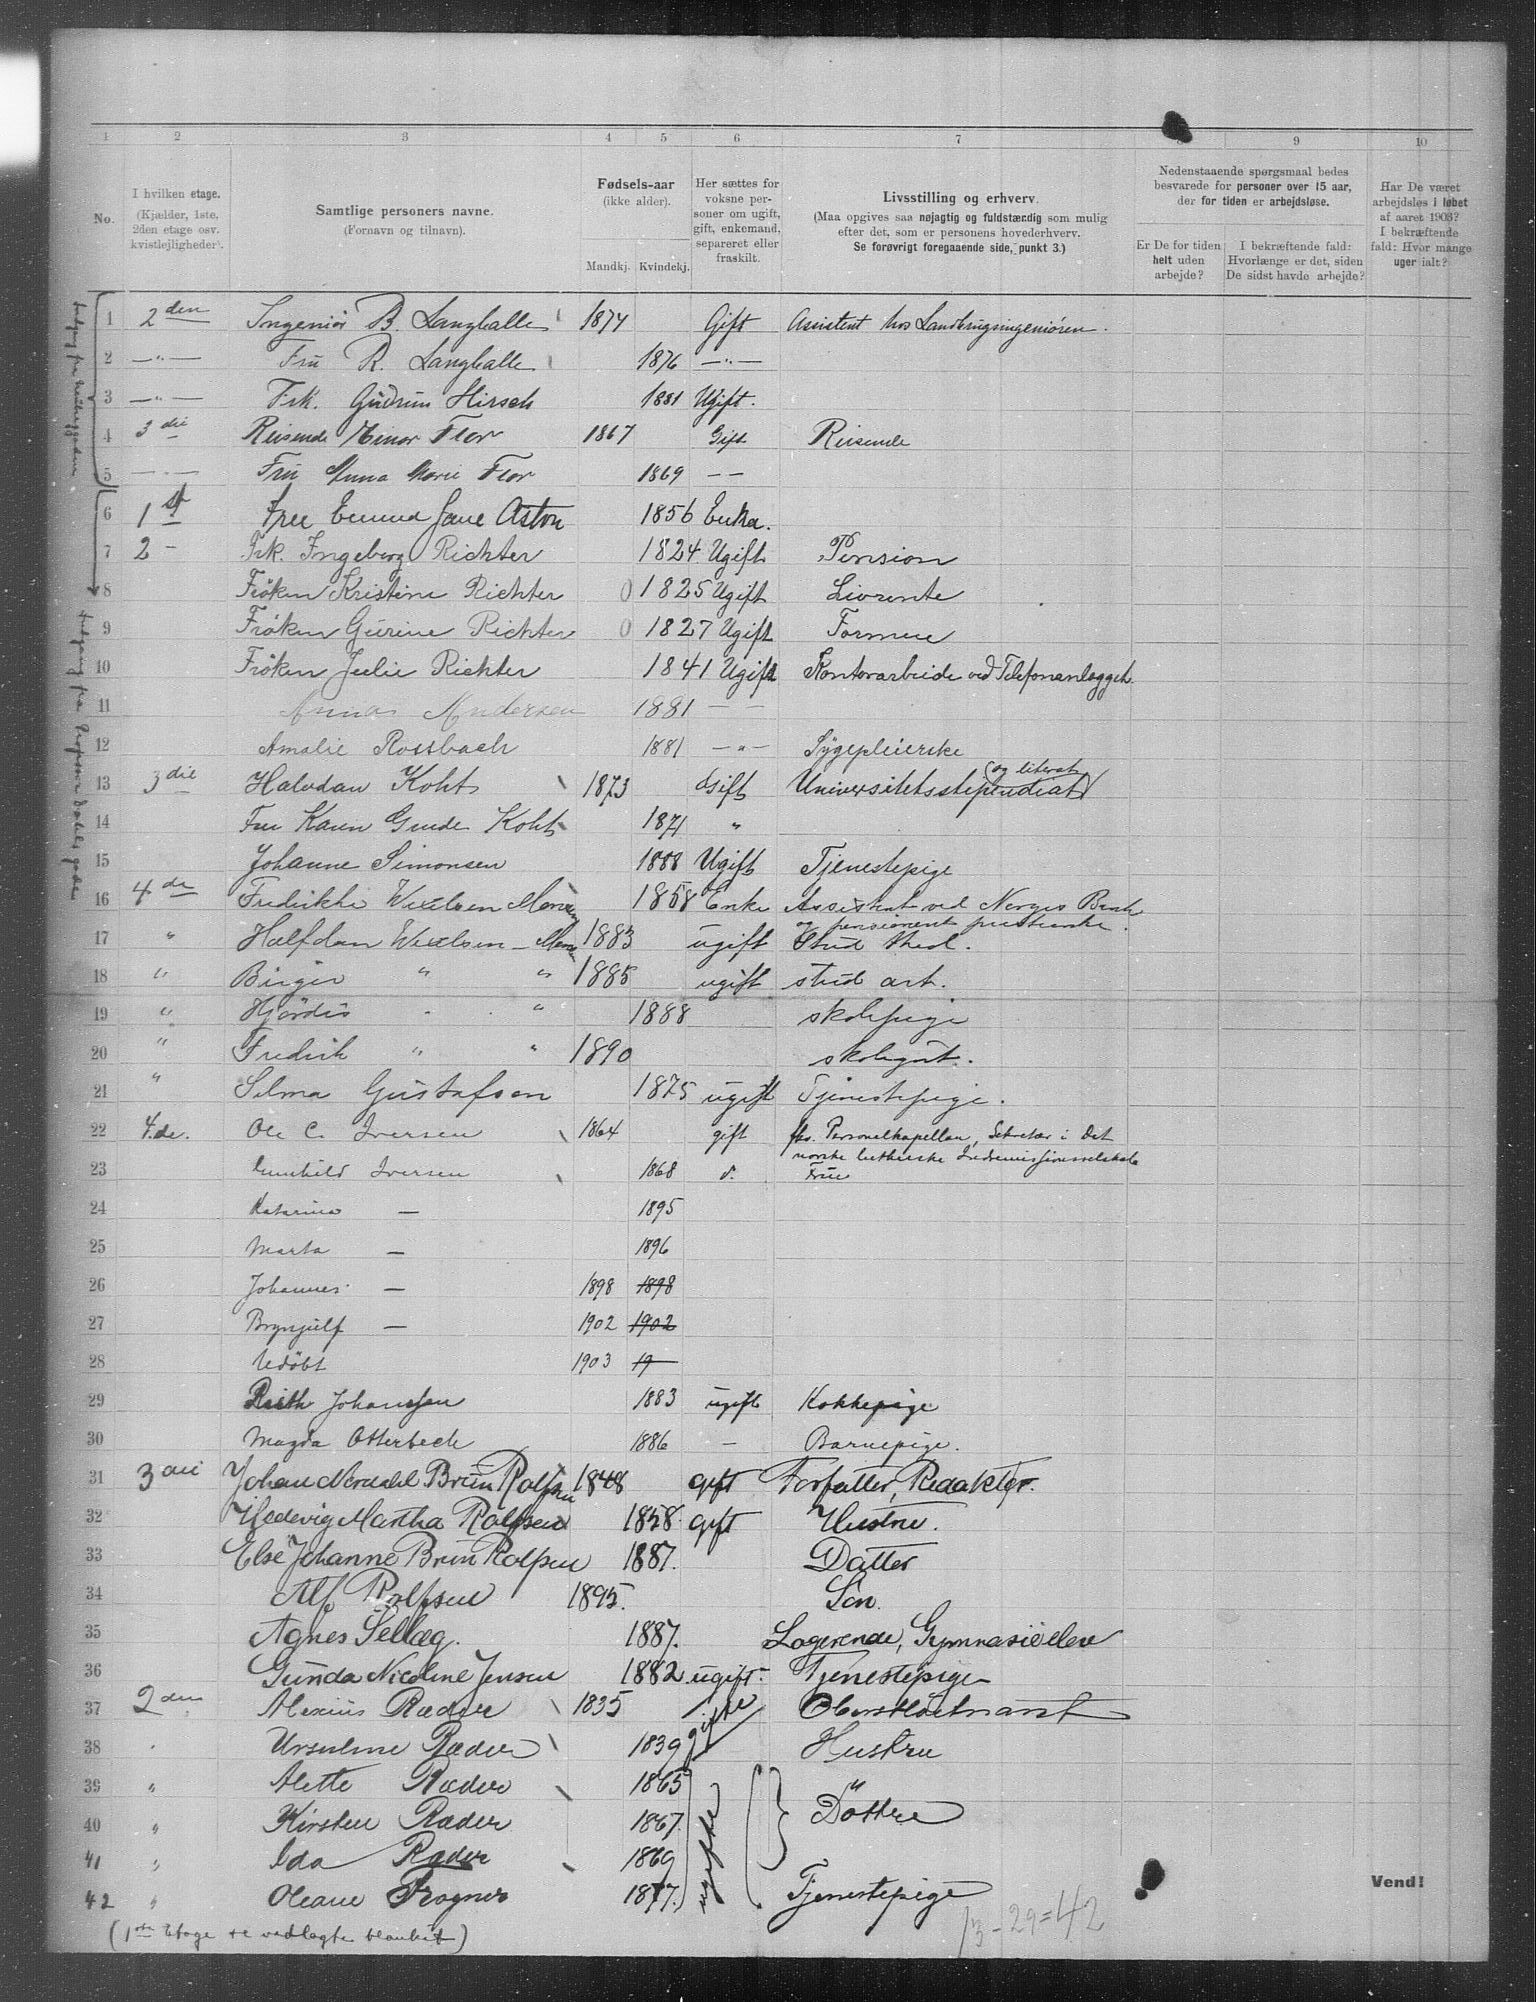 1 2 3 4 5 6 7 9 10
No.
I hvilken etage.
(Kjælder, 1ste,
2den etage osv.
kvistlejligheder).
Samtlige personers navne.
(Fornavn og tilnavn).
Fødsels-aar
(ikke alder).
Mandkj. Kvindekj.
Her sættes for
voksne per-
soner om ugift,
gift, enkemand,
separeret eller
fraskilt.
Livsstilling og erhverv.
(Maa opgives saa nøjagtig og fuldstærdig som mulig
efter det, som er personens hovederhverv.
Se forøvrigt foregaaende side, punkt 3.)
Nedenstaaende spørgsmaal bedes
besvarede for personer over 15 aar,
der for tiden er arbejdsløse.
Er De for tiden
helt uden
arbejde?
I bekræftende fald:
Hvorlænge er det, siden
De sidst havde arbejde?
Har De været
arbejdsløs i løbet
af aaret 1903?
I bekræftende
fald: Hvor mange
uger ialt?
1 2den Ingeniør B. Langballe 1874 Gift Assistent hos Landbrugsingeniøren.
2 —"— Fru R. Langballe 1876 —"—
3 —"— Frk. Gudrun Hirsch 1881 Ugift.
4 3die Reisende Einar Flor 1867 Gift Reisende
5 —"— Fru Anna Marie Flor 1869 — —
6 1st Jane Aston 1856 Enke.
7 2 - Frk. Ingeborg Richter 1824 Ugift Pension
8 Frøken Kristine Richter 0 1825 Ugift Livrente
9 Frøken Gurine Richter 0 1827 Ugift Formue
10 Frøken Julie Richter 1841 Ugift Kontorarbeide ved Telefonanlægget.
11 Anna Andersen 1881 — —
12 Amalie Rossbach 1881 —"— Sygepleierske
13 3die Halvdan Koht 1873 Gift Universitetsstipendiat (og literat)
14 Fru Karen Grude Koht 1871 "
15 Johanne Simonsen 1888 Ugift Tjenestepige
16 4de Fredrikke Wexelsen 1858 Enke Assistent ved Norges Bank
og pensionert presteenke.
17 " Halfdan Wexelsen 1883 ugift Stud theol.
18 " Birger " " 1885 ugift stud art.
19 " Hjørdis " " 1888 skolepige
20 " Fredrik " " 1890 skolegut.
21 " Selma Gustafson 1875 ugift Tjenestepige.
22 4.de. Ole C. Iversen 1864 gift fhv. Personelkapellan, Sekretær i Det
norske lutherske Indremissionsselskab
23 Gunhild Iversen 1868 d. Frue
24 Katarina — 1895
25 Marta — 1896
26 Johannes — 1898 1898
27 Brynjulf — 1902 1902
28 Udøbt 1903 19
29 Johanssen 1883 ugift Kokkepige
30 Magda Otterbech 1886 — Barnepige.
31 3die Johan Nordahl Brun Rolfsen 1848 gift Forfatter, Redaktør.
32 Hedevig Martha Rolfsen 1858 gift Hustru.
33 Else Johanne Brun Rolfsen 1887. Datter
34 Alf Rolfsen 1895. Søn.
35 Agnes Selläg. 1887. Logerende, Gymnasieelev
36 Gunda Nicoline Jensen 1882 ugift. Tjenestepige
37 2den Alexius Ræder 1835 gifte Oberstløitnant
38 " Ursuline Ræder 1839 Hustru
39 " Alette Ræder 1865 ugifte Døttre
40 " Kirsten Ræder 1867.
41 " Ida Ræder 1869
42 " Oleane Frogner 1877. Tjenestepige
Vend!
(1ste Etage se vedlagte blanket)
13 - 29 = 42